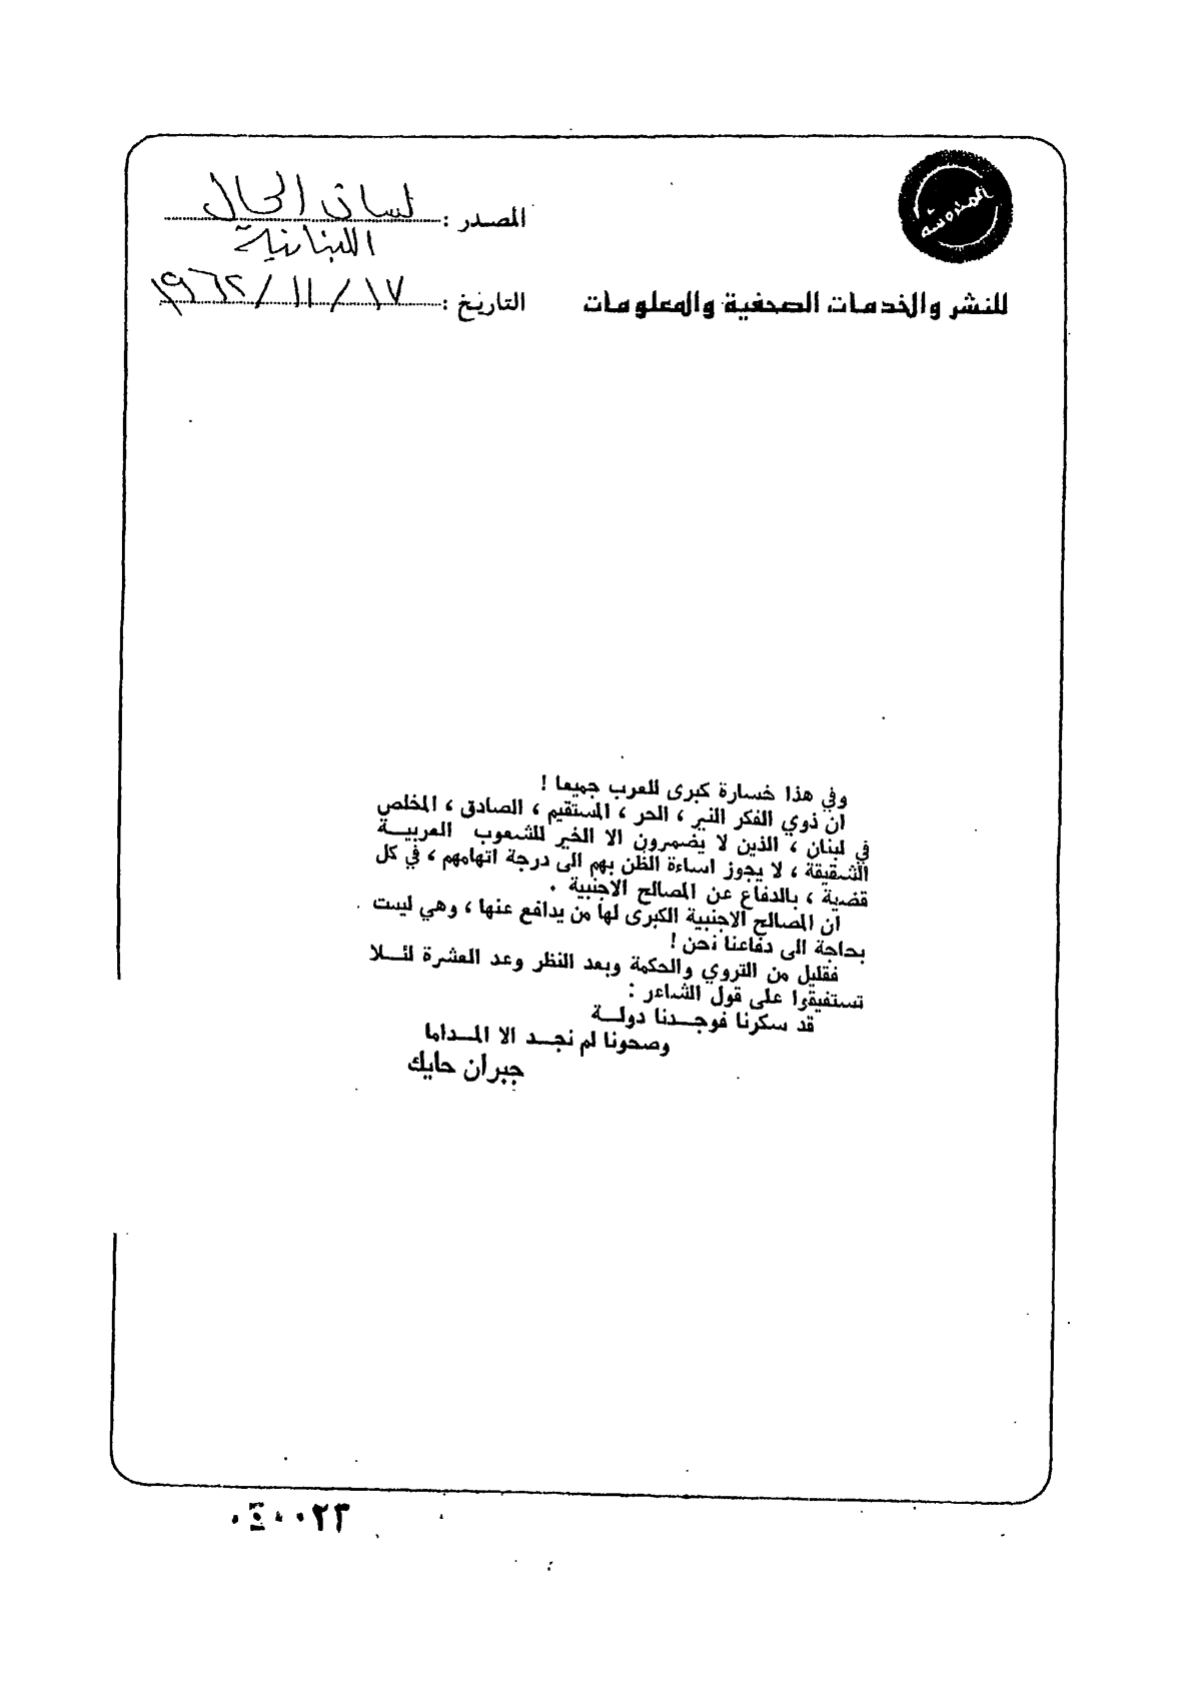 المحروسة
المصدر : لسان الحال
اللبنانية
للنشر والخدمات الصحفية والمعلومات
التاريخ : ١٧ / ١١ / ١٩٦٢
وفي هذا خسارة كبرى للعرب جميعا !
ان ذوي الفكر النير ، الحر ، المستقيم ، الصادق ، المخلص
في لبنان ، الذين لا يضمرون الا الخير للشعوب العربيــة
الشقيقة ، لا يجوز اساءة الظن بهم الى درجة اتهامهم ، في كل
قضية ، بالدفاع عن المصالح الاجنبية .
ان المصالح الاجنبية الكبرى لها من يدافع عنها ، وهي ليست
بحاجة الى دفاعنا نحن !
فقليل من التروي والحكمة وبعد النظر وعد العشرة لئــلا
تستفيقوا على قول الشاعر :
قد سكرنا فوجــدنا دولــة
وصحونا لم نجــد الا المــداما
جبران حايك